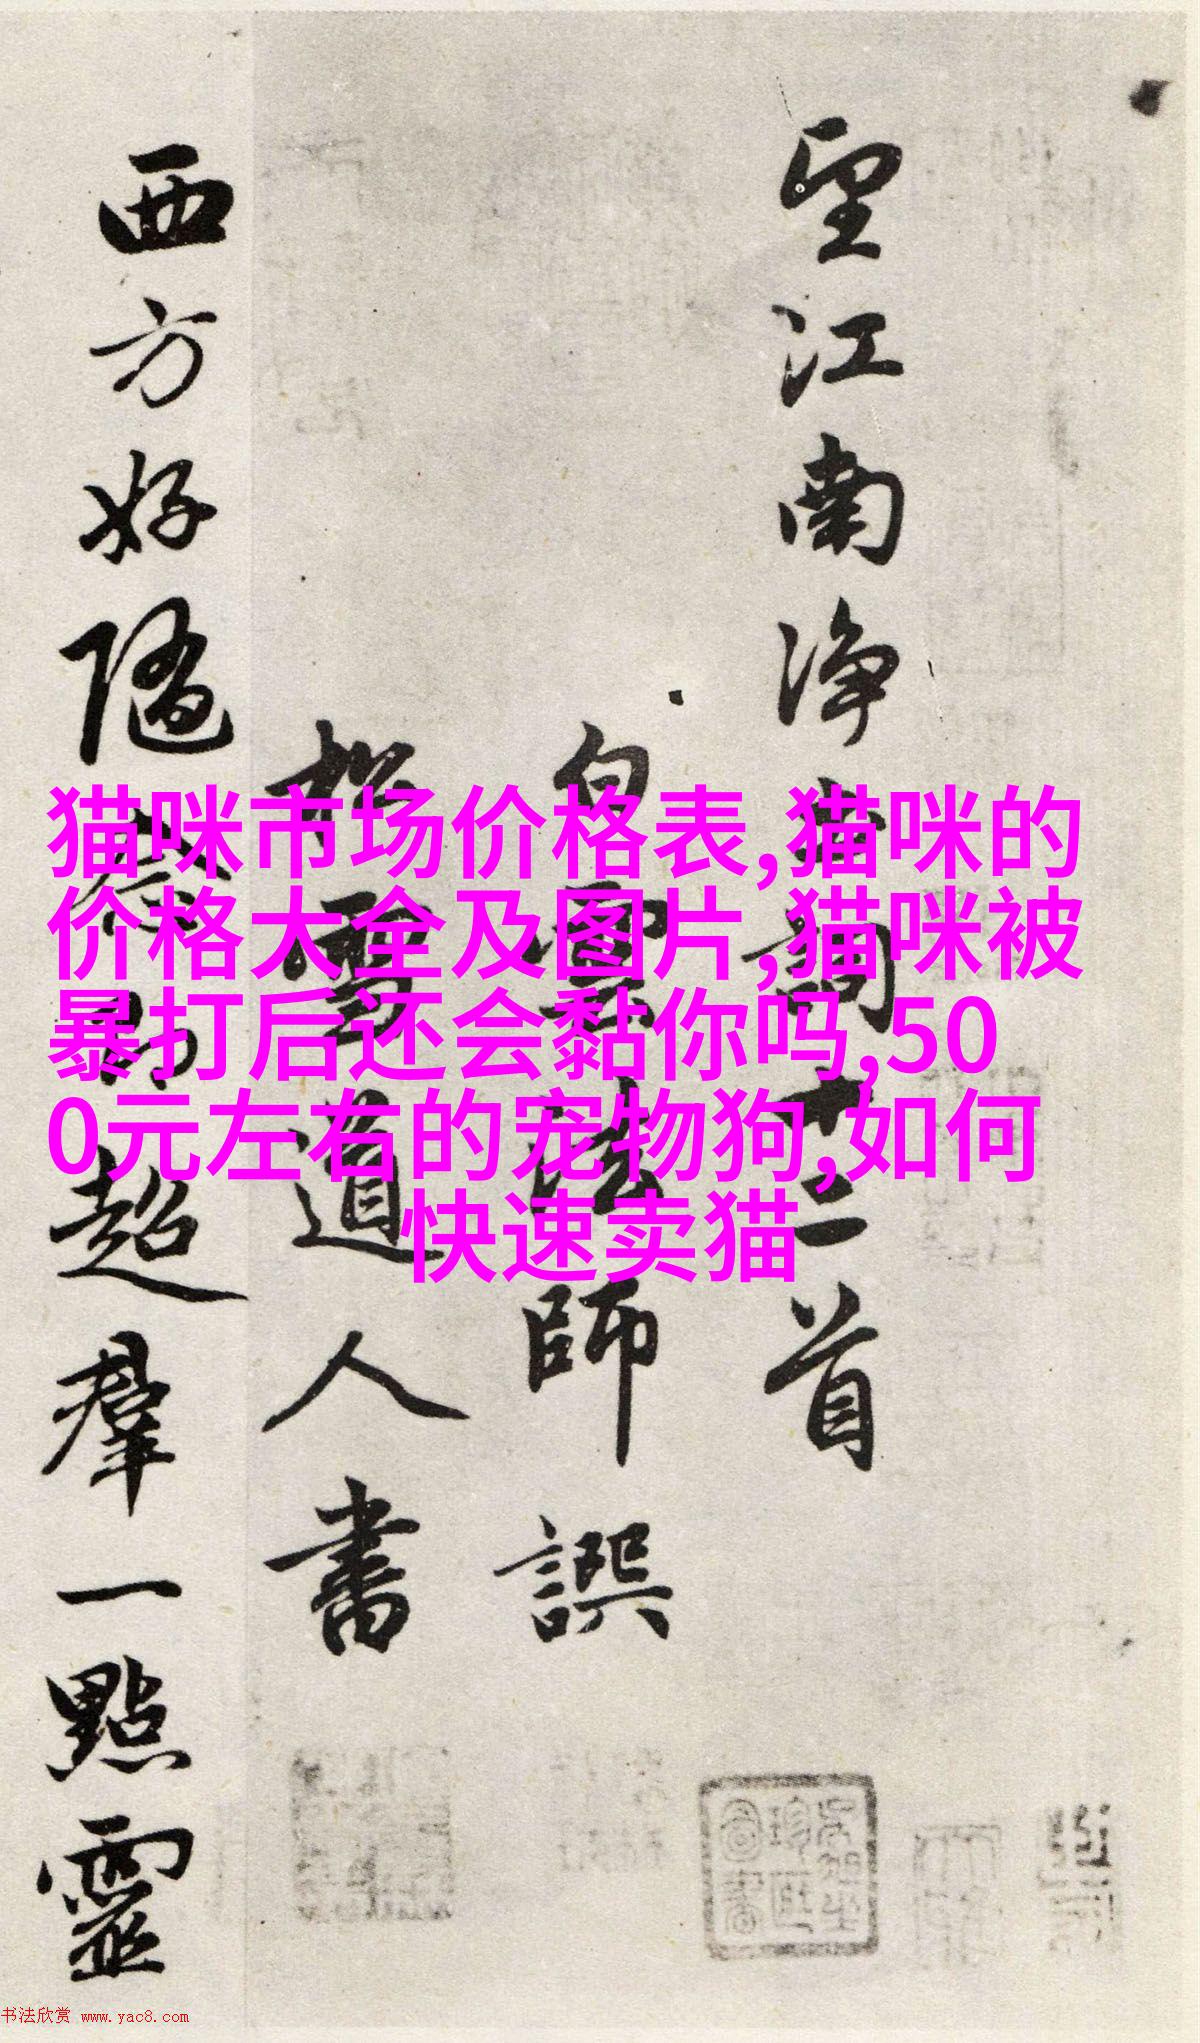 望江南净土詞十二首
白雲法師譔
松雪道人書
西方好隨
超羣一點靈
猫咪市场价格表,猫咪的
价格大全及图片,猫咪被
暴打后还会黏你吗,50
0元左右的宠物狗,如何
快速卖猫
书法欣赏 www.yac8.com